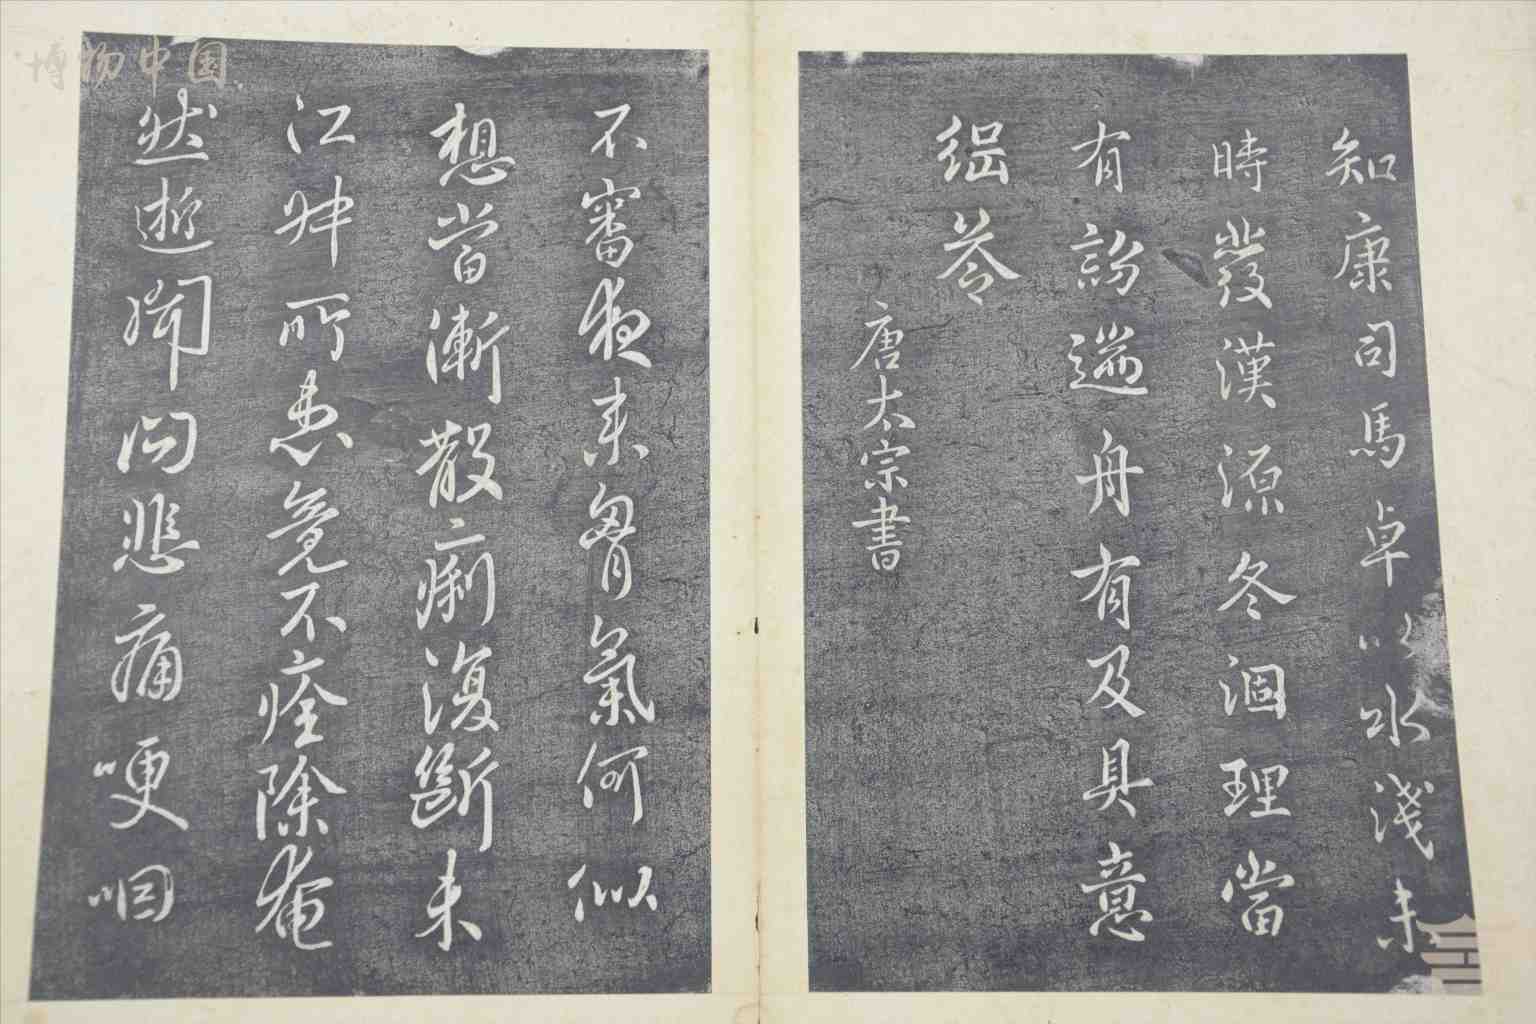 博物中国
知康司馬卓以水淺未
時發漢源冬涸理當
有遄舟有及具意
唐太宗書
不審夜來胷氣何似
想當漸散痢復斷未
江叔所患竟不痊除奄
然逝聞問悲痛哽咽